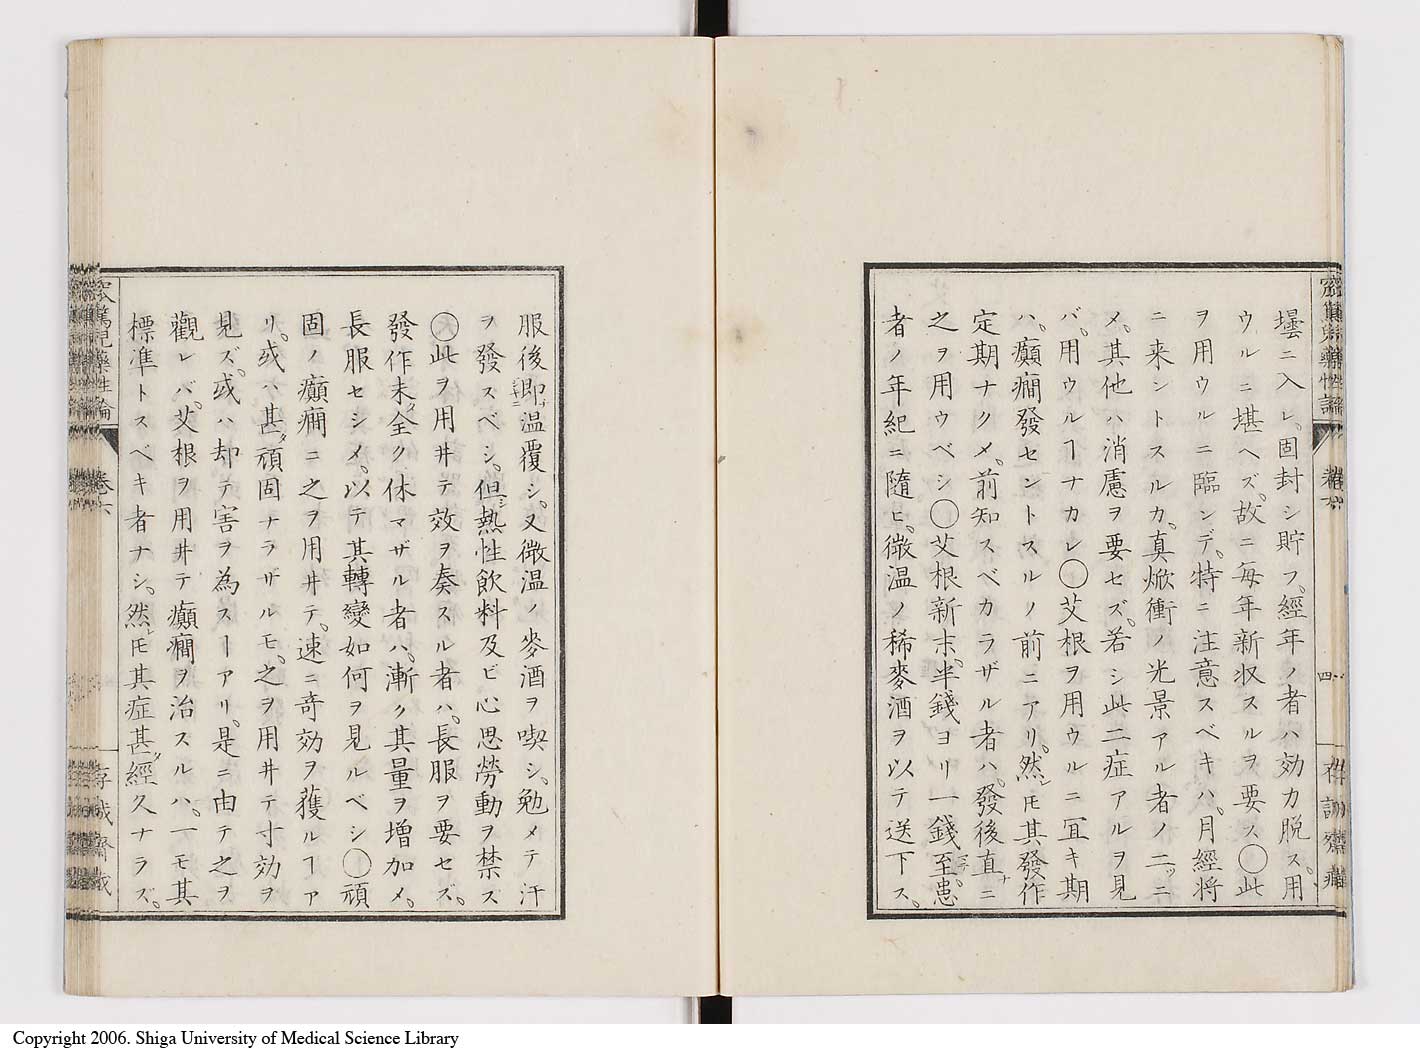 壜ニ入レ。固封シ貯フ。經年ノ者ハ効力脱ス。用
ウルニ堪ヘズ。故ニ每年新収スルヲ要ス〇此
ヲ用ウルニ臨ンデ。特ニ注意スベキハ。月經将
ニ来ントスルカ。真焮衝ノ光景アル者ノ二ツニ
メ。其他ハ消慮ヲ要セズ。若シ此二症アルヲ見
バ。用ウルヿナカレ〇艾根ヲ用ウルニ冝キ期
ハ。癲癇發セントスルノ前ニアリ。然レ𪜈其發作
定期ナクメ。前知スベカラザル者ハ。發後直ナニ
之ヲ用ウベシ〇艾根新末。半錢ヨリ一錢至ニテ。患
者ノ年紀ニ隨ヒ。微温ノ稀麥酒ヲ以テ送下ス。
四
窊篤児藥性論
卷六
存誠齋蔵
服後即チニ温覆シ。又微温ノ麥酒ヲ喫シ。勉メテ汗
ヲ發スベシ。但シ熱性飲料及ビ心思勞動ヲ禁ズ
〇此ヲ用井テ效ヲ奏スル者ハ。長服ヲ要セズ。
發作未ダ全ク休マザル者ハ。漸ク其量ヲ增加メ。
長服セシメ。以テ其轉變如何ヲ見ルベシ〇頑
固ノ癲癇ニ之ヲ用井テ。速ニ奇効ヲ獲ルヿア
リ。或ハ甚ダ頑固ナラザルモ。之ヲ用井テ寸効ヲ
見ズ。或ハ却テ害ヲ為スヿアリ。是ニ由テ之ヲ
觀レバ。艾根ヲ用井テ癲癇ヲ治スルハ。一モ其
標準トスベキ者ナシ。然レ𪜈其症甚ダ經久ナラズ。
窊篤児藥性論
卷六
存誠齋蔵
Copyright 2006. Shiga University of Medical Science Library